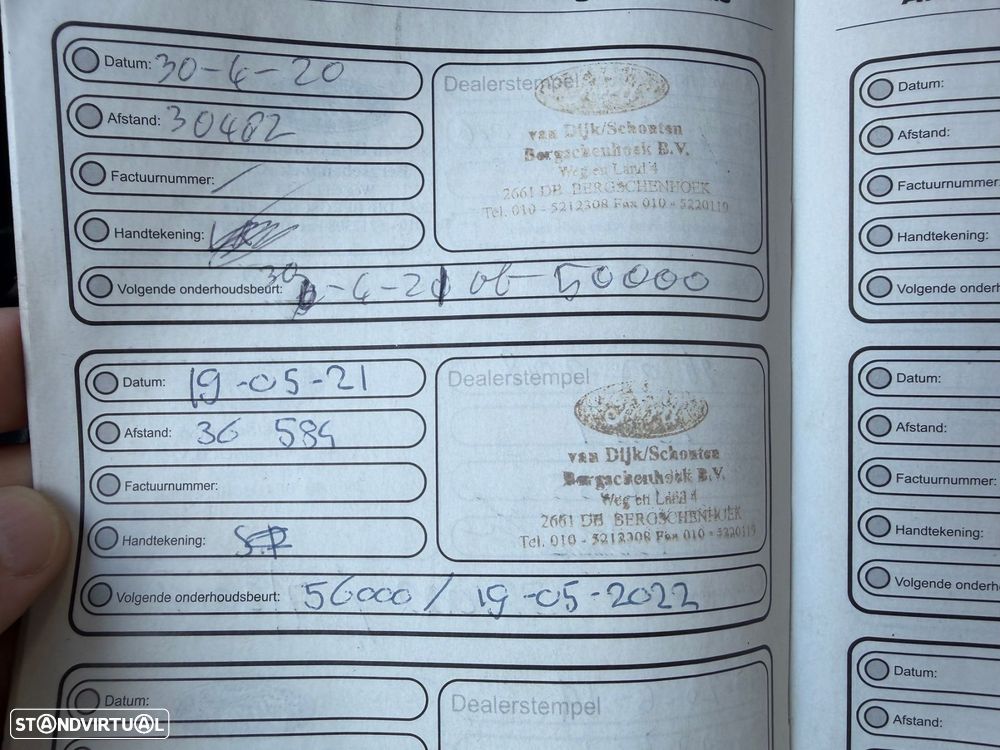 Datum: 30-4-20
Afstand: 30482
Factuurnummer: /
Handtekening:
Volgende onderhoudsbeurt: 30-4-21 of 50000
Dealerstempel
van Dijk/Schouten
Bergschenhoek B.V.
Weg en Land 4
2661 DB BERGSCHENHOEK
Tel. 010 - 5212308 Fax 010 - 5220119
Datum: 19-05-21
Afstand: 36 584
Factuurnummer:
Handtekening:
Volgende onderhoudsbeurt: 56000 / 19-05-2022
Dealerstempel
van Dijk/Schouten
Bergschenhoek B.V.
Weg en Land 4
2661 DB BERGSCHENHOEK
Tel. 010 - 5212308 Fax 010 - 5220119
Datum:
Dealerstempel
Datum:
Afstand:
Factuurnummer:
Handtekening:
Volgende onderh
Datum:
Afstand:
Factuurnummer:
Handtekening:
Volgende onderh
Datum:
Afstand:
STANDVIRTUAL